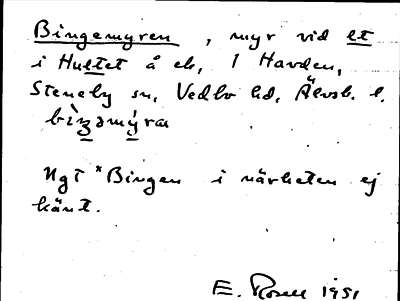 Bingemyren, myr vid lt
i Hultet å ek, 1 Havden,
Steneby sn, Vedbo hd, Älvsb. l.
Ngt *Bingen i närheten ej
känt.
E. Rosell 1951